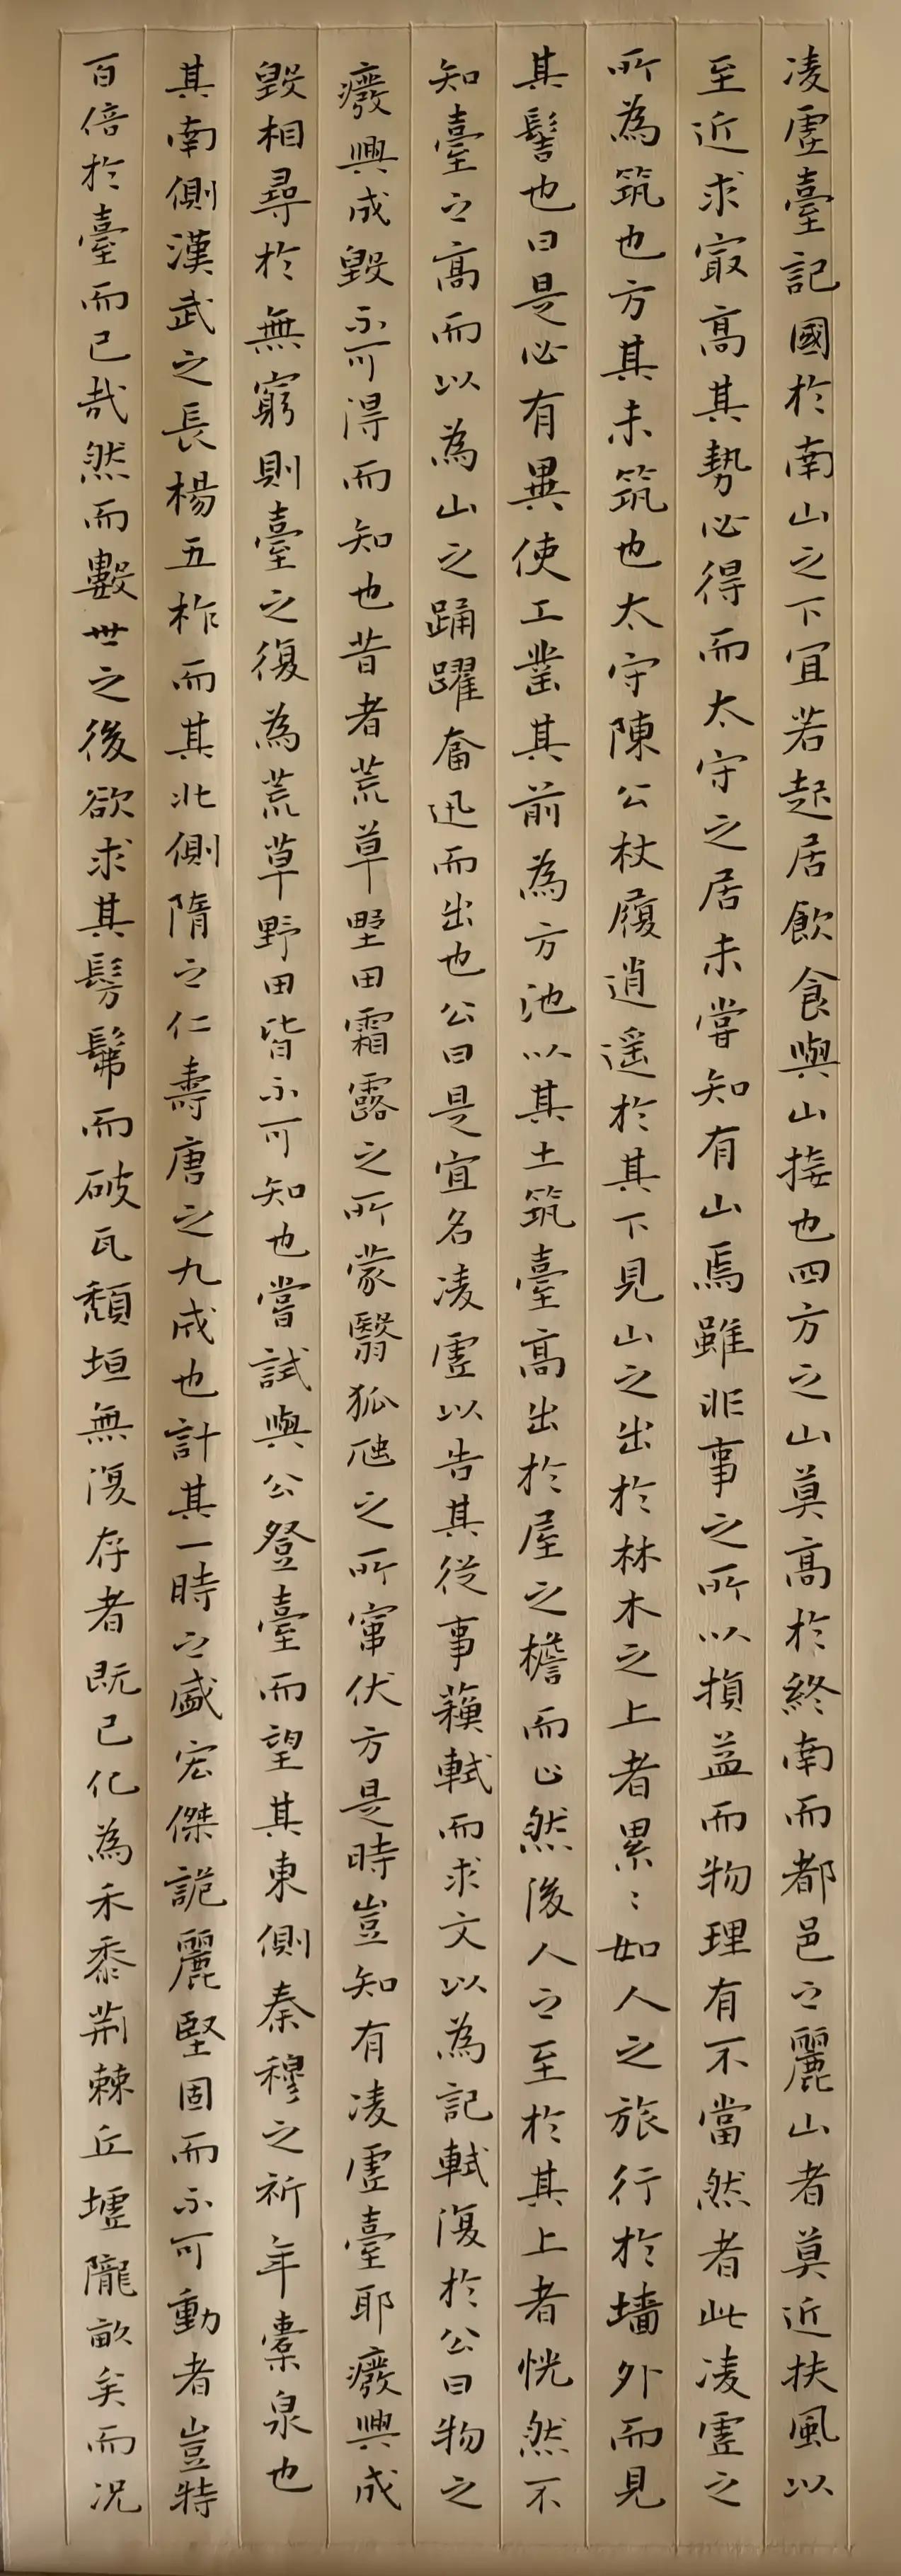 凌虛臺記國於南山之下宜若起居飲食與山接也四方之山莫高於終南而都邑之麗山者莫近扶風以
至近求最高其勢必得而太守之居未嘗知有山焉雖非事之所以損益而物理有不當然者此凌虛之
所為筑也方其未筑也太守陳公杖履逍遙於其下見山之出於林木之上者累〻如人之旅行於墻外而見
其髻也曰是必有異使工鑿其前為方池以其土筑臺高出於屋之檐而止然後人之至於其上者恍然不
知臺之高而以為山之踊躍奮迅而出也公曰是宜名凌虛以告其從事蘇軾而求文以為記軾復於公曰物之
癈興成毀不可得而知也昔者荒草墅田霜露之所蒙翳狐虺之所竄伏方是時豈知有凌虛臺耶癈興成
毀相尋於無窮則臺之復為荒草野田皆不可知也嘗試與公登臺而望其東側秦穆之祈年橐泉也
其南側漢武之長楊五柞而其北側隋之仁壽唐之九成也計其一時之盛宏傑詭麗堅固而不可動者豈特
百倍於臺而已哉然而數世之後欲求其髣髴而破瓦頹垣無復存者既已化為禾黍荊棘丘墟隴畝矣而況